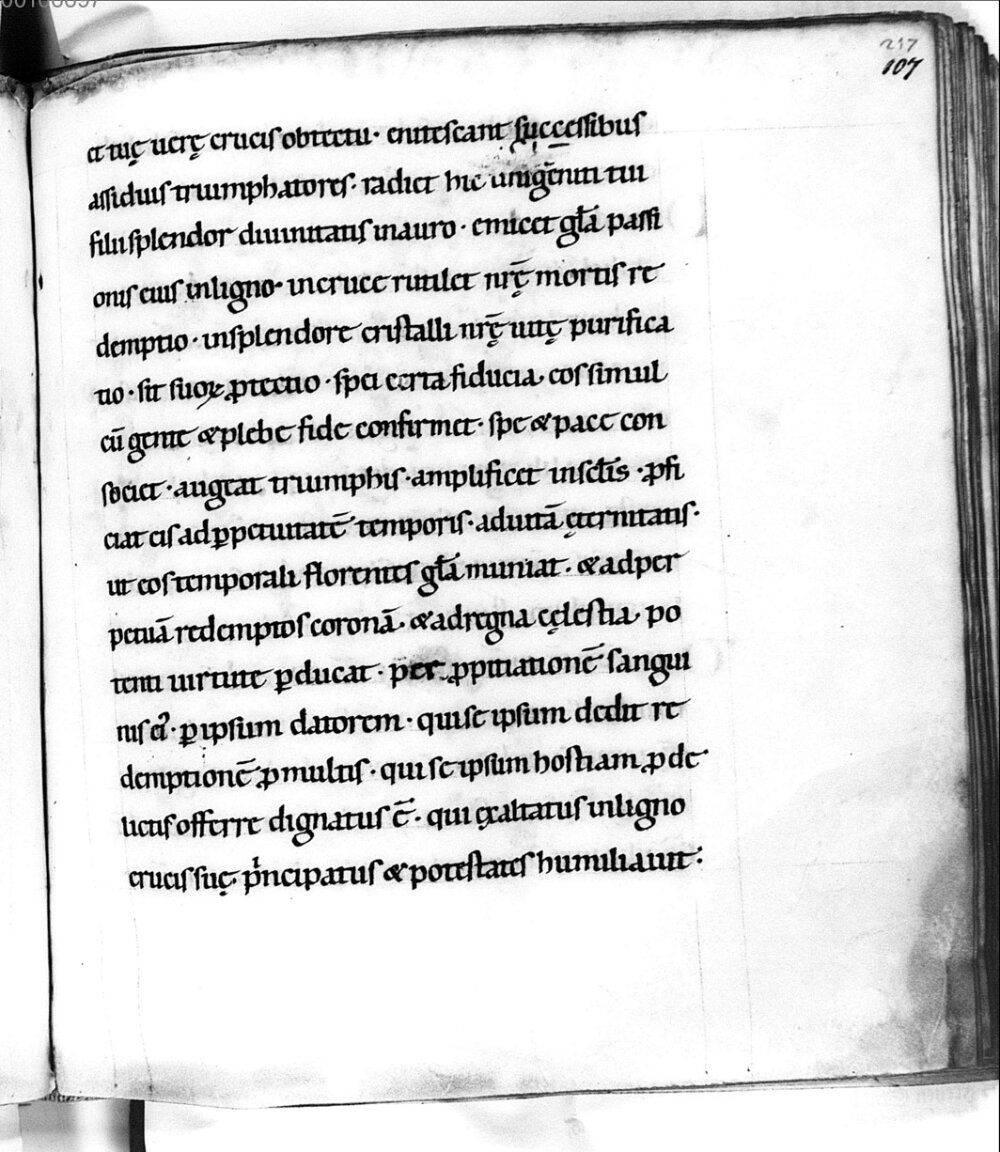 217
107
et tuę uerę crucis obtectu· enitescant successibus
assiduis triumphatores· radiet hic unigeniti tui
filii splendor diuinitatis in auro· emicet gła passi
onis eius in ligno· in cruce rutilet nrę̄ mortis re
demptio· in splendore cristalli nrę̄ uitę purifica
tio· sit suoꝝ ꝓtectio· spei certa fiducia· eos simul
cū gente & plebe fide confirmet· spe & pace con
societ· augeat triumphis· amplificet in scłis· ꝓfi
ciat eis ad ꝑpetuitatē temporis· ad uitā ęternitatis·
ut eos temporali florentes gła muniat· & ad per
petuā redemptos coronā· & ad regna cęlestia· po
tenti uirtute ꝑducat· per ꝓpitiationē sangui
nis ei᾽· ꝑ ipsum datorem· qui se ipsum dedit re
demptionē ꝓ multis· qui se ipsum hostiam ꝓ de
lictis offerre dignatus ē· qui exaltatus in ligno
crucis suę· pⁱncipatus & potestates humiliauit: